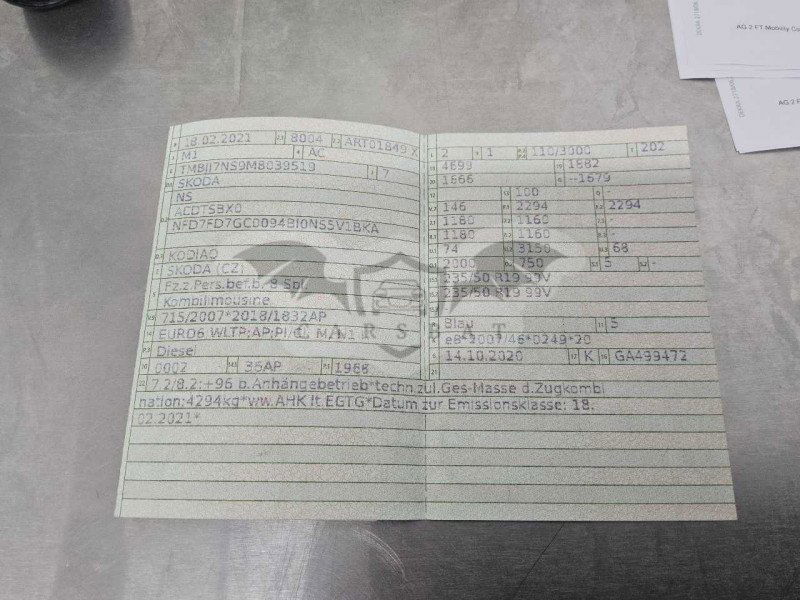 18.02.2021 8004 ART01849 X
M1 AC
TMBJJ7NS9M8039519 7
SKODA
NS
ACDTSBX0
NFD7FD7GC0094BI0NS5V1BKA
KODIAQ
SKODA (CZ)
Fz.z.Pers.bef.b. 8 Spl.
Kombilimousine
715/2007*2018/1832AP
EURO6 WLTP;AP;PI/CI; M, N1 I
Diesel
0002 36AP 1968
2 1 110/3000 202
4699 1882
1666 --1679
100 -
146 2294 2294
1180 1160 -
1180 1160 -
74 3150 68
2000 750 5 -
235/50 R19 99V
235/50 R19 99V
Blau 5
e8*2007/46*0249*20
14.10.2020 K GA499472
7.2/8.2:+96 b.Anhängebetrieb*techn.zul.Ges-Masse d.Zugkombi
nation:4294kg*ww.AHK lt.EGTG*Datum zur Emissionsklasse: 18.
02.2021*
CARSBAT
AG 2 FT Mobility Co
AG 2 FT